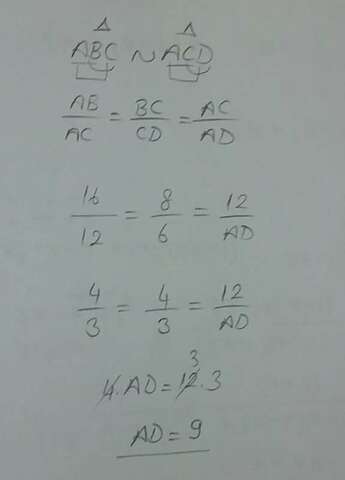 △ △
ABC ~ ACD
AB/AC = BC/CD = AC/AD
16/12 = 8/6 = 12/AD
4/3 = 4/3 = 12/AD
3
4.AD = 12.3
AD = 9